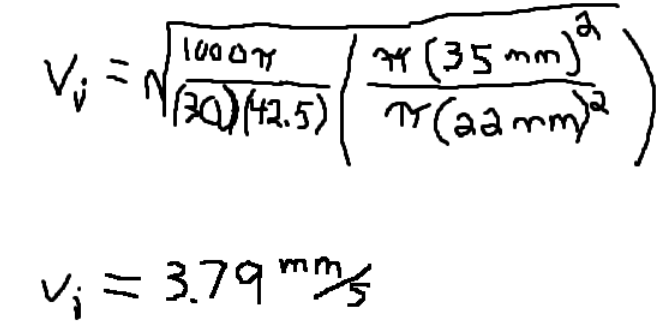 Vⱼ = √(1000π / (30)(42.5)) (π(35 mm)² / π(22 mm)²)
Vⱼ = 3.79 mm/s